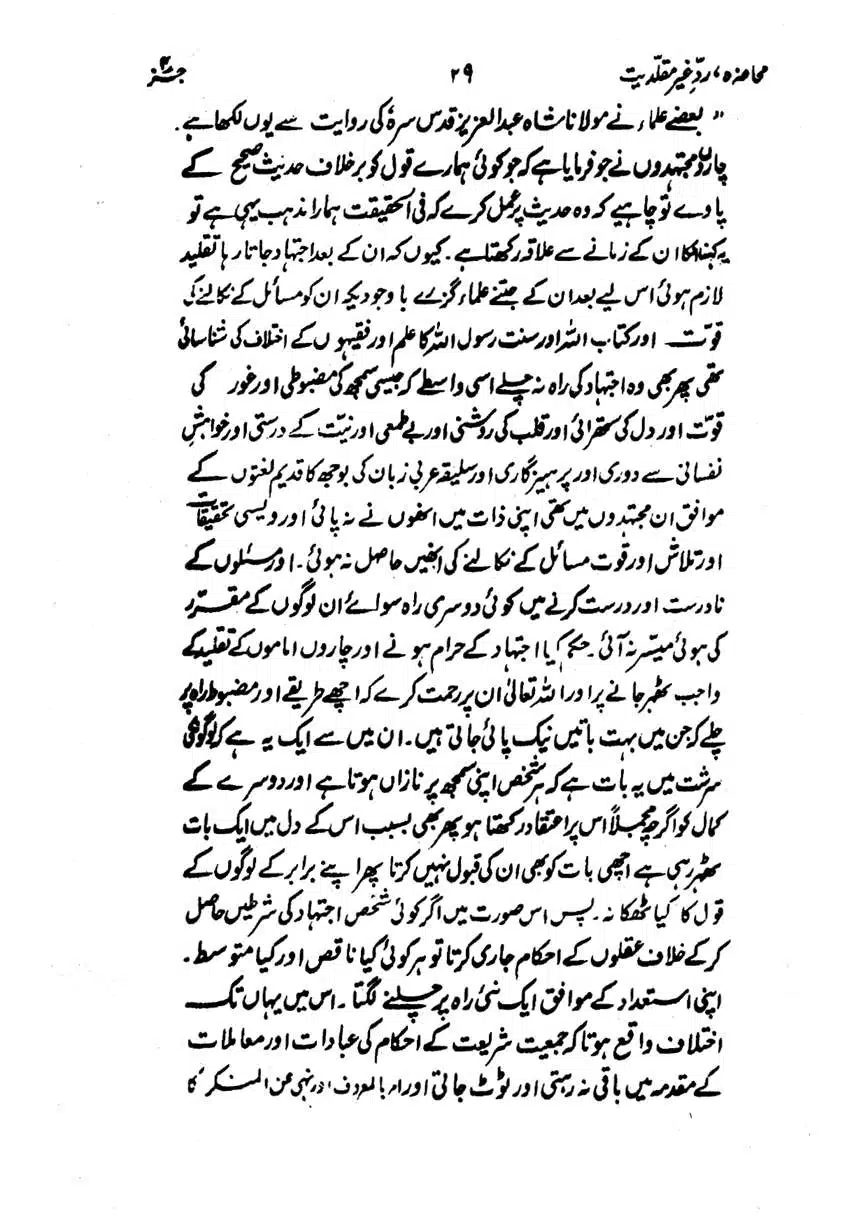 محاضرہ، ردِّ غیر مقلدیت ۲۹ جز ۳
” بعضے علماء نے مولانا شاہ عبدالعزیز قدس سرہٗ کی روایت سے یوں لکھا ہے۔
چاروں مجتہدوں نے جو فرمایا ہے کہ جو کوئی ہمارے قول کو برخلاف حدیث صحیح کے
پاوے تو چاہیے کہ وہ حدیث پر عمل کرے کہ فی الحقیقت ہمارا مذہب یہی ہے تو
یہ کہنا انکا ان کے زمانے سے علاقہ رکھتا ہے۔ کیوں کہ ان کے بعد اجتہاد جاتا رہا تقلید
لازم ہوئی اس لیے بعد ان کے جتنے علماء گزرے باوجودیکہ ان کو مسائل کے نکالنے کی
قوّت اور کتاب اللہ اور سنت رسول اللہ کا علم اور فقیہوں کے اختلاف کی شناسائی
تھی پھر بھی وہ اجتہاد کی راہ نہ چلے اسی واسطے کہ جیسی سمجھ کی مضبوطی اور غور کی
قوّت اور دل کی ستھرائی اور قلب کی روشنی اور بے طمعی اور نیّت کے درستی اور خواہشِ
نفسانی سے دوری اور پرہیزگاری اور سلیقہ عربی زبان کی بوجھ کا قدیم لغتوں کے
موافق ان مجتہدوں میں تھی اپنی ذات میں انھوں نے نہ پائی اور ویسی تحقیقات
اور تلاش اور قوت مسائل کے نکالنے کی انھیں حاصل نہ ہوئی۔ اور مسئلوں کے
نادرست اور درست کرنے میں کوئی دوسری راہ سوائے ان لوگوں کے مقرّر
کی ہوئی میسّر نہ آئی۔ حکم کیا اجتہاد کے حرام ہونے اور چاروں اماموں کے تقلید کے
واجب ٹھہر جانے پر اور اللہ تعالیٰ ان پر رحمت کرے کہ اچھے طریقے اور مضبوط راہ پر
چلے کہ جن میں بہت باتیں نیک پائی جاتی ہیں۔ ان میں سے ایک یہ ہے کہ لوگوں کی
سرشت میں یہ بات ہے کہ ہر شخص اپنی سمجھ پر نازاں ہوتا ہے اور دوسرے کے
کمال کو اگرچہ مجملاً اس پر اعتقاد رکھتا ہو پھر بھی بسبب اس کے دل میں ایک بات
ٹھہر رہی ہے اچھی بات کو بھی ان کی قبول نہیں کرتا پھر اپنے برابر کے لوگوں کے
قول کا کیا ٹھکانہ۔ پس اس صورت میں اگر کوئی شخص اجتہاد کی شرطیں حاصل
کر کے خلاف عقلوں کے احکام جاری کرتا تو ہر کوئی کیا ناقص اور کیا متوسط۔
اپنی استعداد کے موافق ایک نئی راہ پر چلنے لگتا۔ اس میں یہاں تک
اختلاف واقع ہوتا کہ جمعیت شریعت کے احکام کی عبادات اور معاملات
کے مقدمہ میں باقی نہ رہتی اور ٹوٹ جاتی اور امر بالمعروف اور نہی عن المنکر کا